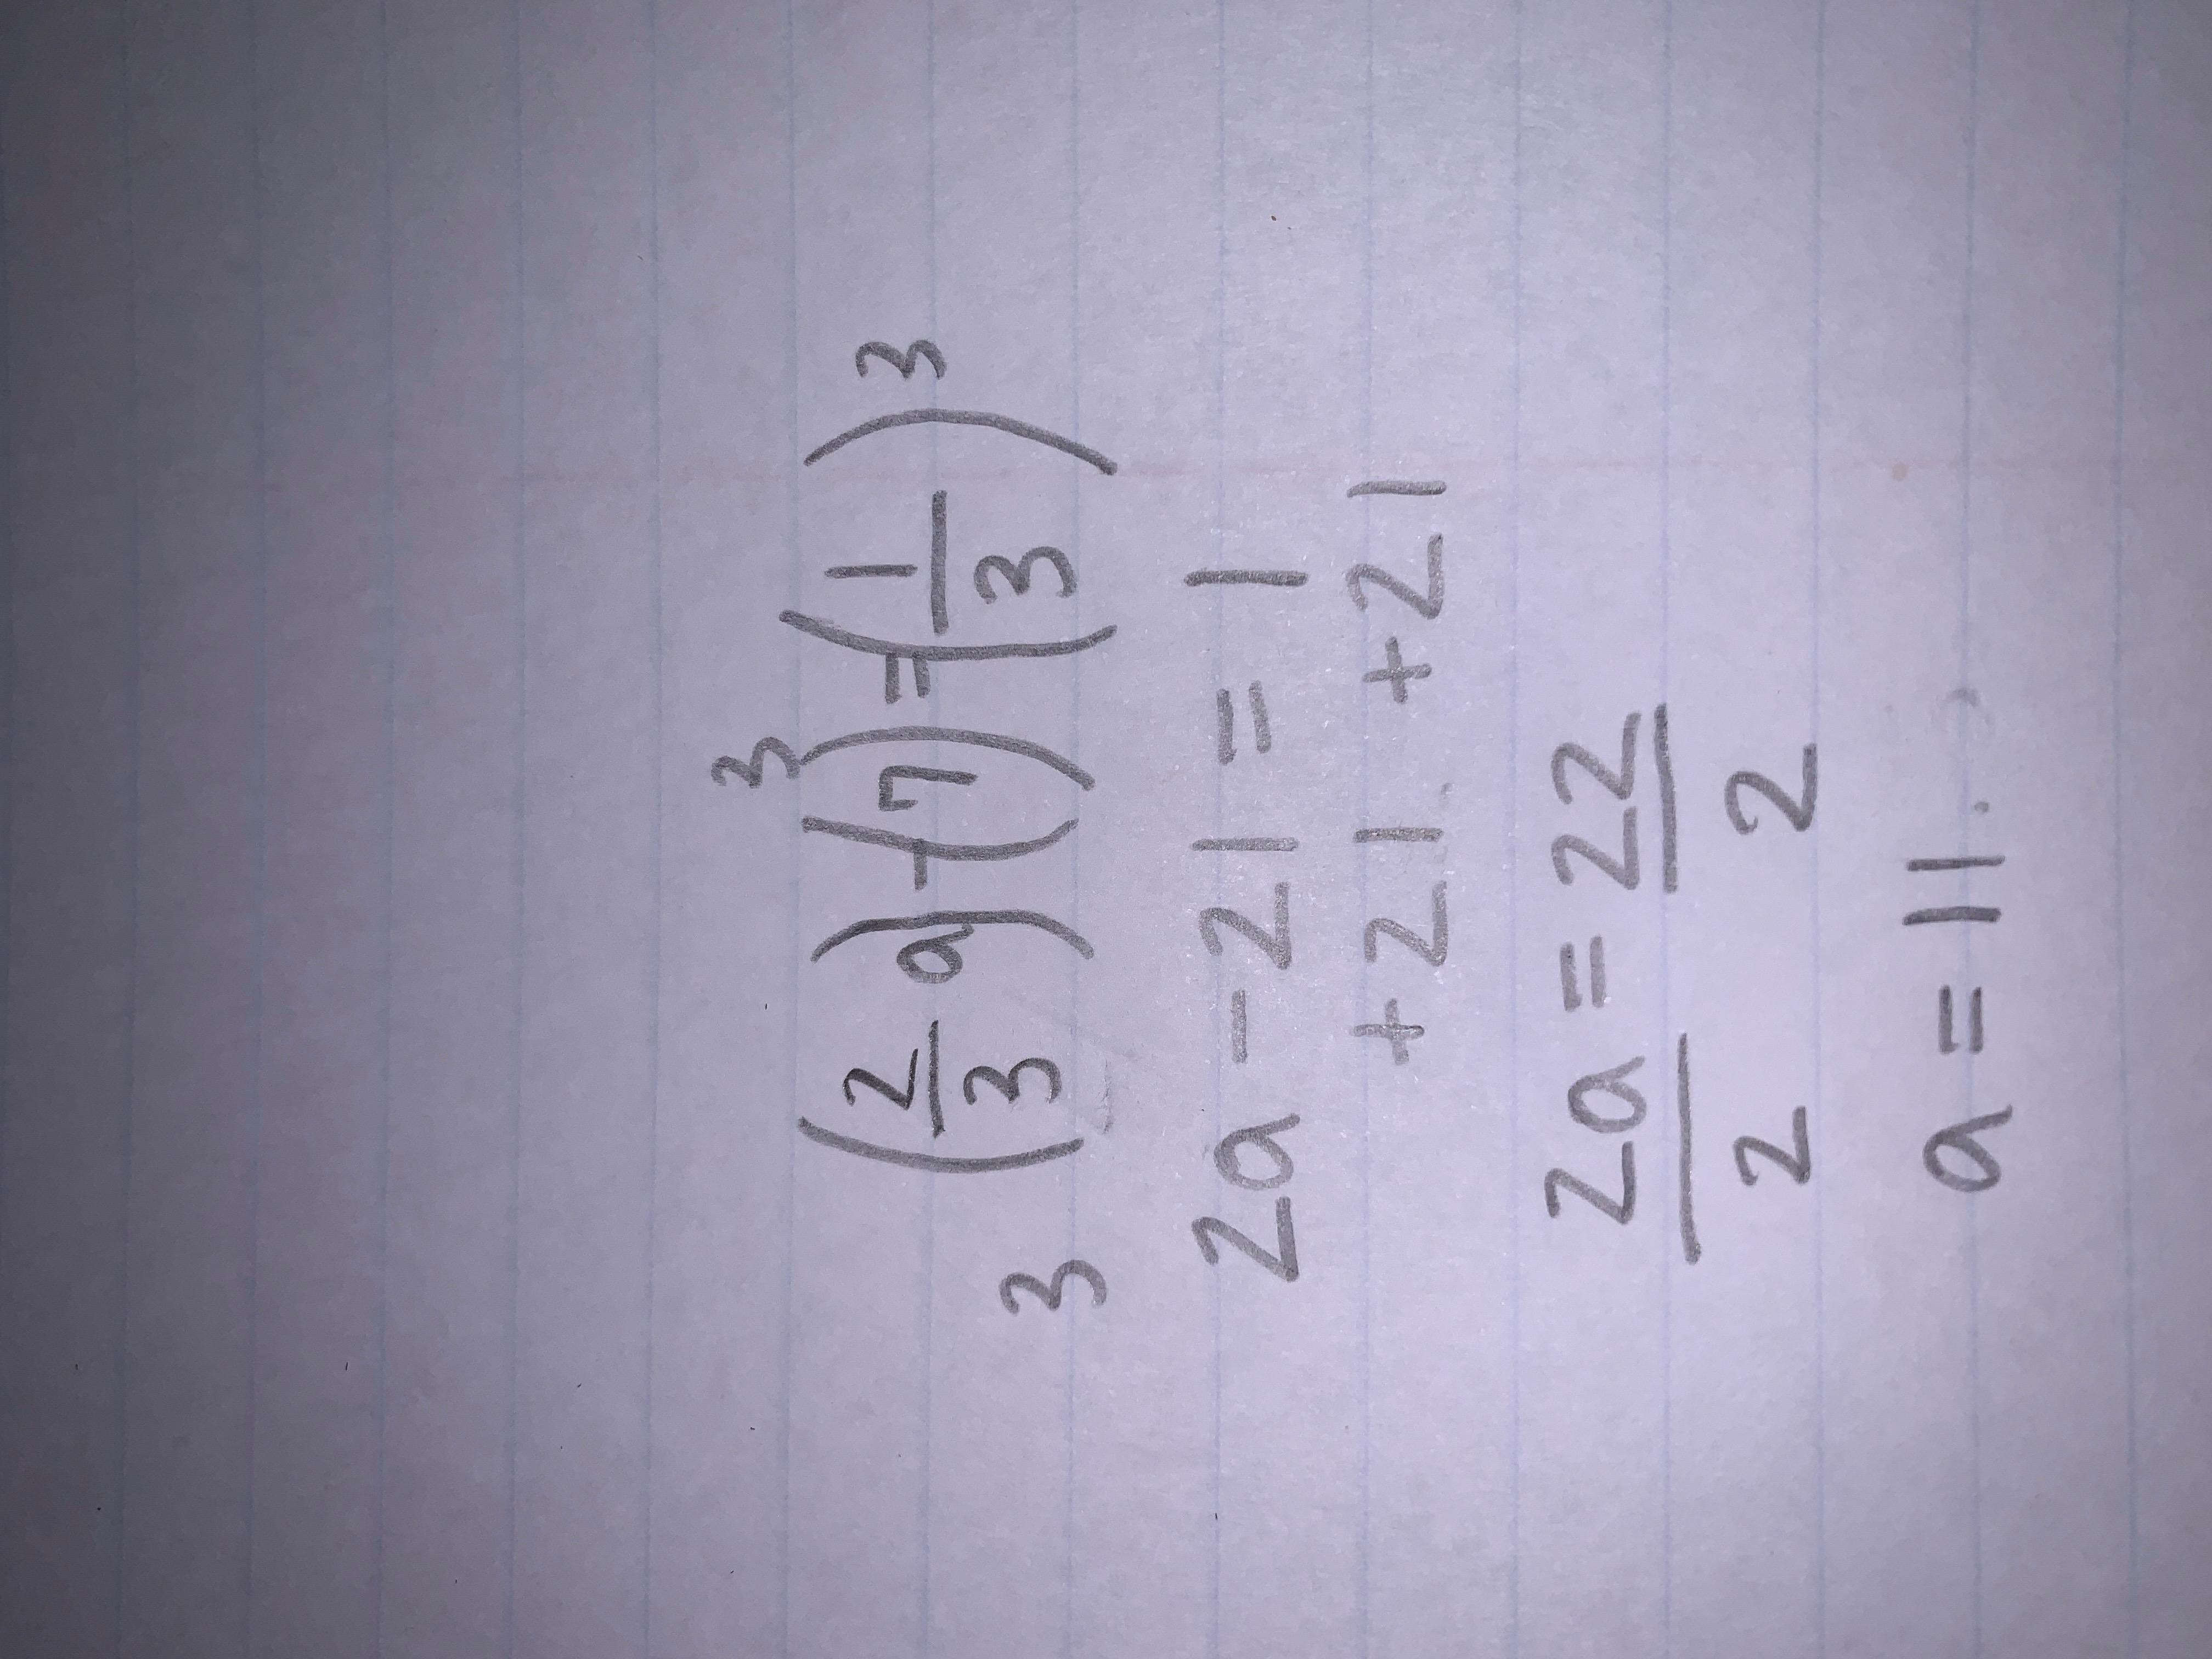 3(2/3 a)-(7)³=(1/3)³
2a - 21 = 1
+21. +21
2a = 22
2 2
a = 11.